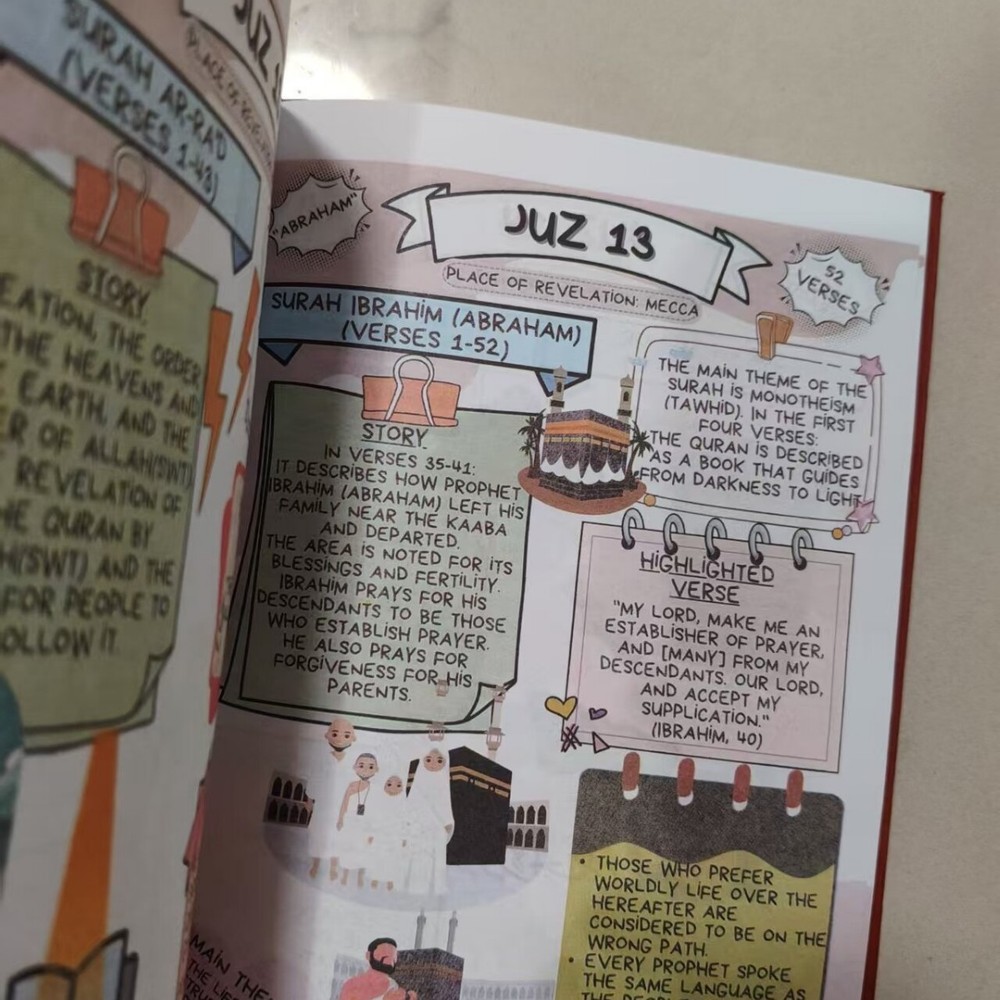 SURAH AR-RAD
(VERSES 1-43)
STORY
THE ORDER
THE HEAVENS AND
EARTH, AND THE
OF ALLAH(SWT).
REVELATION OF
THE QURAN BY
AND THE
FOR PEOPLE TO
FOLLOW IT.
"ABRAHAM"
JUZ 13
PLACE OF REVELATION: MECCA
52
VERSES
SURAH IBRAHİM (ABRAHAM)
(VERSES 1-52)
STORY
IN VERSES 35-41:
IT DESCRIBES HOW PROPHET
IBRAHİM (ABRAHAM) LEFT HİS
FAMILY NEAR THE KAABA
AND DEPARTED.
THE AREA IS NOTED FOR ITS
BLESSINGS AND FERTILITY.
IBRAHİM PRAYS FOR HİS
DESCENDANTS TO BE THOSE
WHO ESTABLİSH PRAYER.
HE ALSO PRAYS FOR
FORGİVENESS FOR HİS
PARENTS.
THE MAİN THEME OF THE
SURAH İS MONOTHEİSM
(TAWHİD). İN THE FİRST
FOUR VERSES:
THE QURAN İS DESCRİBED
AS A BOOK THAT GUİDES
FROM DARKNESS TO LİGHT.
HİGHLİGHTED
VERSE
"MY LORD, MAKE ME AN
ESTABLİSHER OF PRAYER,
AND [MANY] FROM MY
DESCENDANTS. OUR LORD,
AND ACCEPT MY
SUPPLİCATİON."
(İBRAHİM, 40)
• THOSE WHO PREFER
WORLDLY LİFE OVER THE
HEREAFTER ARE
CONSİDERED TO BE ON THE
WRONG PATH.
• EVERY PROPHET SPOKE
THE SAME LANGUAGE AS
MAİN
THE